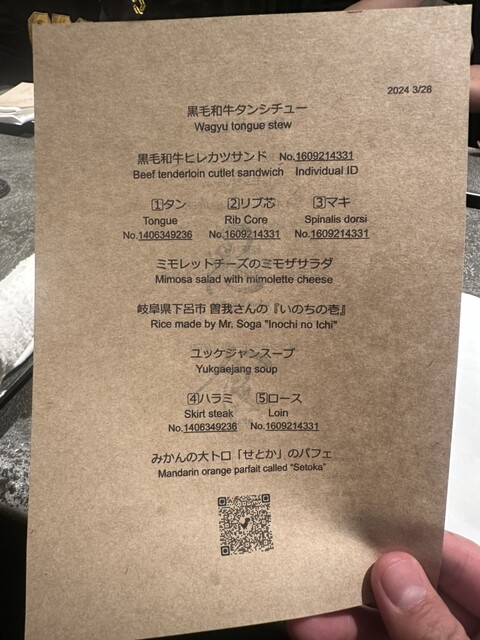 2024 3/28
黒毛和牛タンシチュー
Wagyu tongue stew
黒毛和牛ヒレカツサンド No.1609214331
Beef tenderloin cutlet sandwich Individual ID
1タン 2リブ芯 3マキ
Tongue Rib Core Spinalis dorsi
No.1406349236 No.1609214331 No.1609214331
ミモレットチーズのミモザサラダ
Mimosa salad with mimolette cheese
岐阜県下呂市 曽我さんの『いのちの壱』
Rice made by Mr. Soga "Inochi no Ichi"
ユッケジャンスープ
Yukgaejang soup
4ハラミ 5ロース
Skirt steak Loin
No.1406349236 No.1609214331
みかんの大トロ「せとか」のパフェ
Mandarin orange parfait called "Setoka"